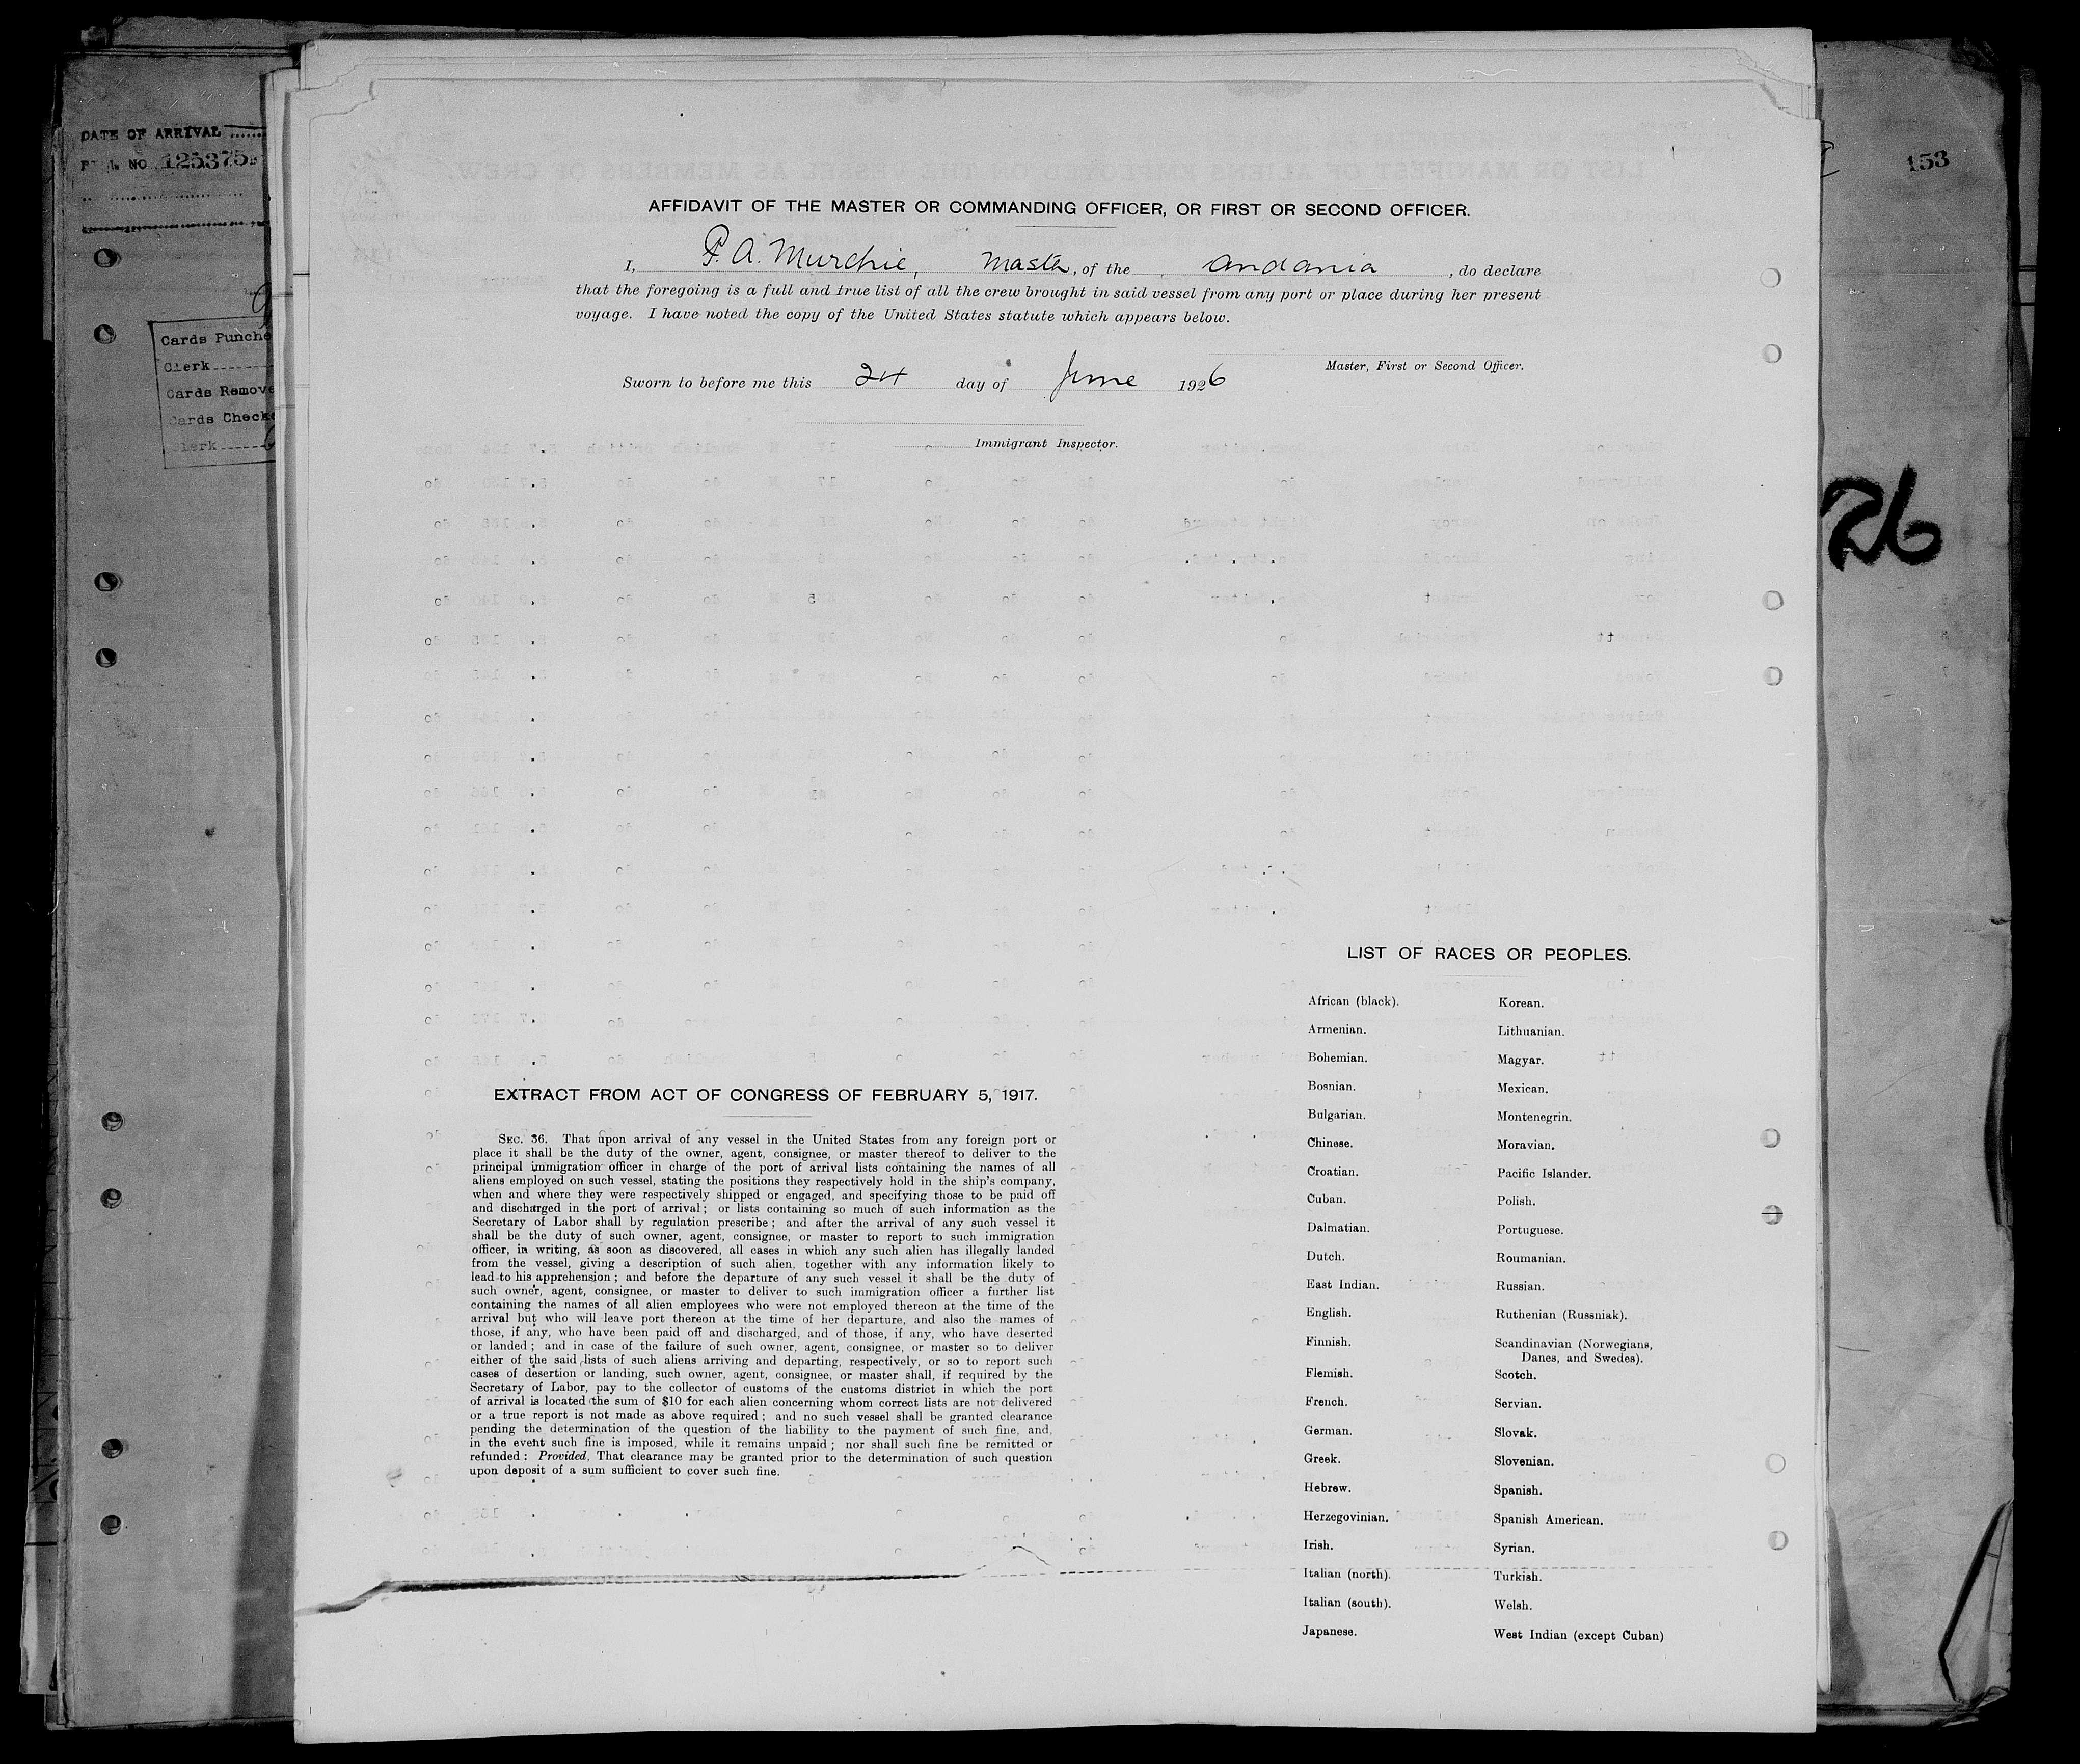 DATE OF ARRIVAL
NO. 125375
Cards Punche
Clerk
Cards Remove
Cards Check
Clerk
153
26
AFFIDAVIT OF THE MASTER OR COMMANDING OFFICER, OR FIRST OR SECOND OFFICER.
I, P. A. Murchie, Master, of the Andania, do declare
that the foregoing is a full and true list of all the crew brought in said vessel from any port or place during her present
voyage. I have noted the copy of the United States statute which appears below.
Master, First or Second Officer.
Sworn to before me this 24 day of June 1926
Immigrant Inspector.
EXTRACT FROM ACT OF CONGRESS OF FEBRUARY 5, 1917.
SEC. 36. That upon arrival of any vessel in the United States from any foreign port or
place it shall be the duty of the owner, agent, consignee, or master thereof to deliver to the
principal immigration officer in charge of the port of arrival lists containing the names of all
aliens employed on such vessel, stating the positions they respectively hold in the ship's company,
when and where they were respectively shipped or engaged, and specifying those to be paid off
and discharged in the port of arrival; or lists containing so much of such information as the
Secretary of Labor shall by regulation prescribe; and after the arrival of any such vessel it
shall be the duty of such owner, agent, consignee, or master to report to such immigration
officer, in writing, as soon as discovered, all cases in which any such alien has illegally landed
from the vessel, giving a description of such alien, together with any information likely to
lead to his apprehension; and before the departure of any such vessel it shall be the duty of
such owner, agent, consignee, or master to deliver to such immigration officer a further list
containing the names of all alien employees who were not employed thereon at the time of the
arrival but who will leave port thereon at the time of her departure, and also the names of
those, if any, who have been paid off and discharged, and of those, if any, who have deserted
or landed; and in case of the failure of such owner, agent, consignee, or master so to deliver
either of the said lists of such aliens arriving and departing, respectively, or so to report such
cases of desertion or landing, such owner, agent, consignee, or master shall, if required by the
Secretary of Labor, pay to the collector of customs of the customs district in which the port
of arrival is located the sum of $10 for each alien concerning whom correct lists are not delivered
or a true report is not made as above required; and no such vessel shall be granted clearance
pending the determination of the question of the liability to the payment of such fine, and,
in the event such fine is imposed, while it remains unpaid; nor shall such fine be remitted or
refunded: Provided, That clearance may be granted prior to the determination of such question
upon deposit of a sum sufficient to cover such fine.
LIST OF RACES OR PEOPLES.
African (black).
Armenian.
Bohemian.
Bosnian.
Bulgarian.
Chinese.
Croatian.
Cuban.
Dalmatian.
Dutch.
East Indian.
English.
Finnish.
Flemish.
French.
German.
Greek.
Hebrew.
Herzegovinian.
Irish.
Italian (north).
Italian (south).
Japanese.
Korean.
Lithuanian.
Magyar.
Mexican.
Montenegrin.
Moravian.
Pacific Islander.
Polish.
Portuguese.
Roumanian.
Russian.
Ruthenian (Russniak).
Scandinavian (Norwegians,
Danes, and Swedes).
Scotch.
Servian.
Slovak.
Slovenian.
Spanish.
Spanish American.
Syrian.
Turkish.
Welsh.
West Indian (except Cuban)